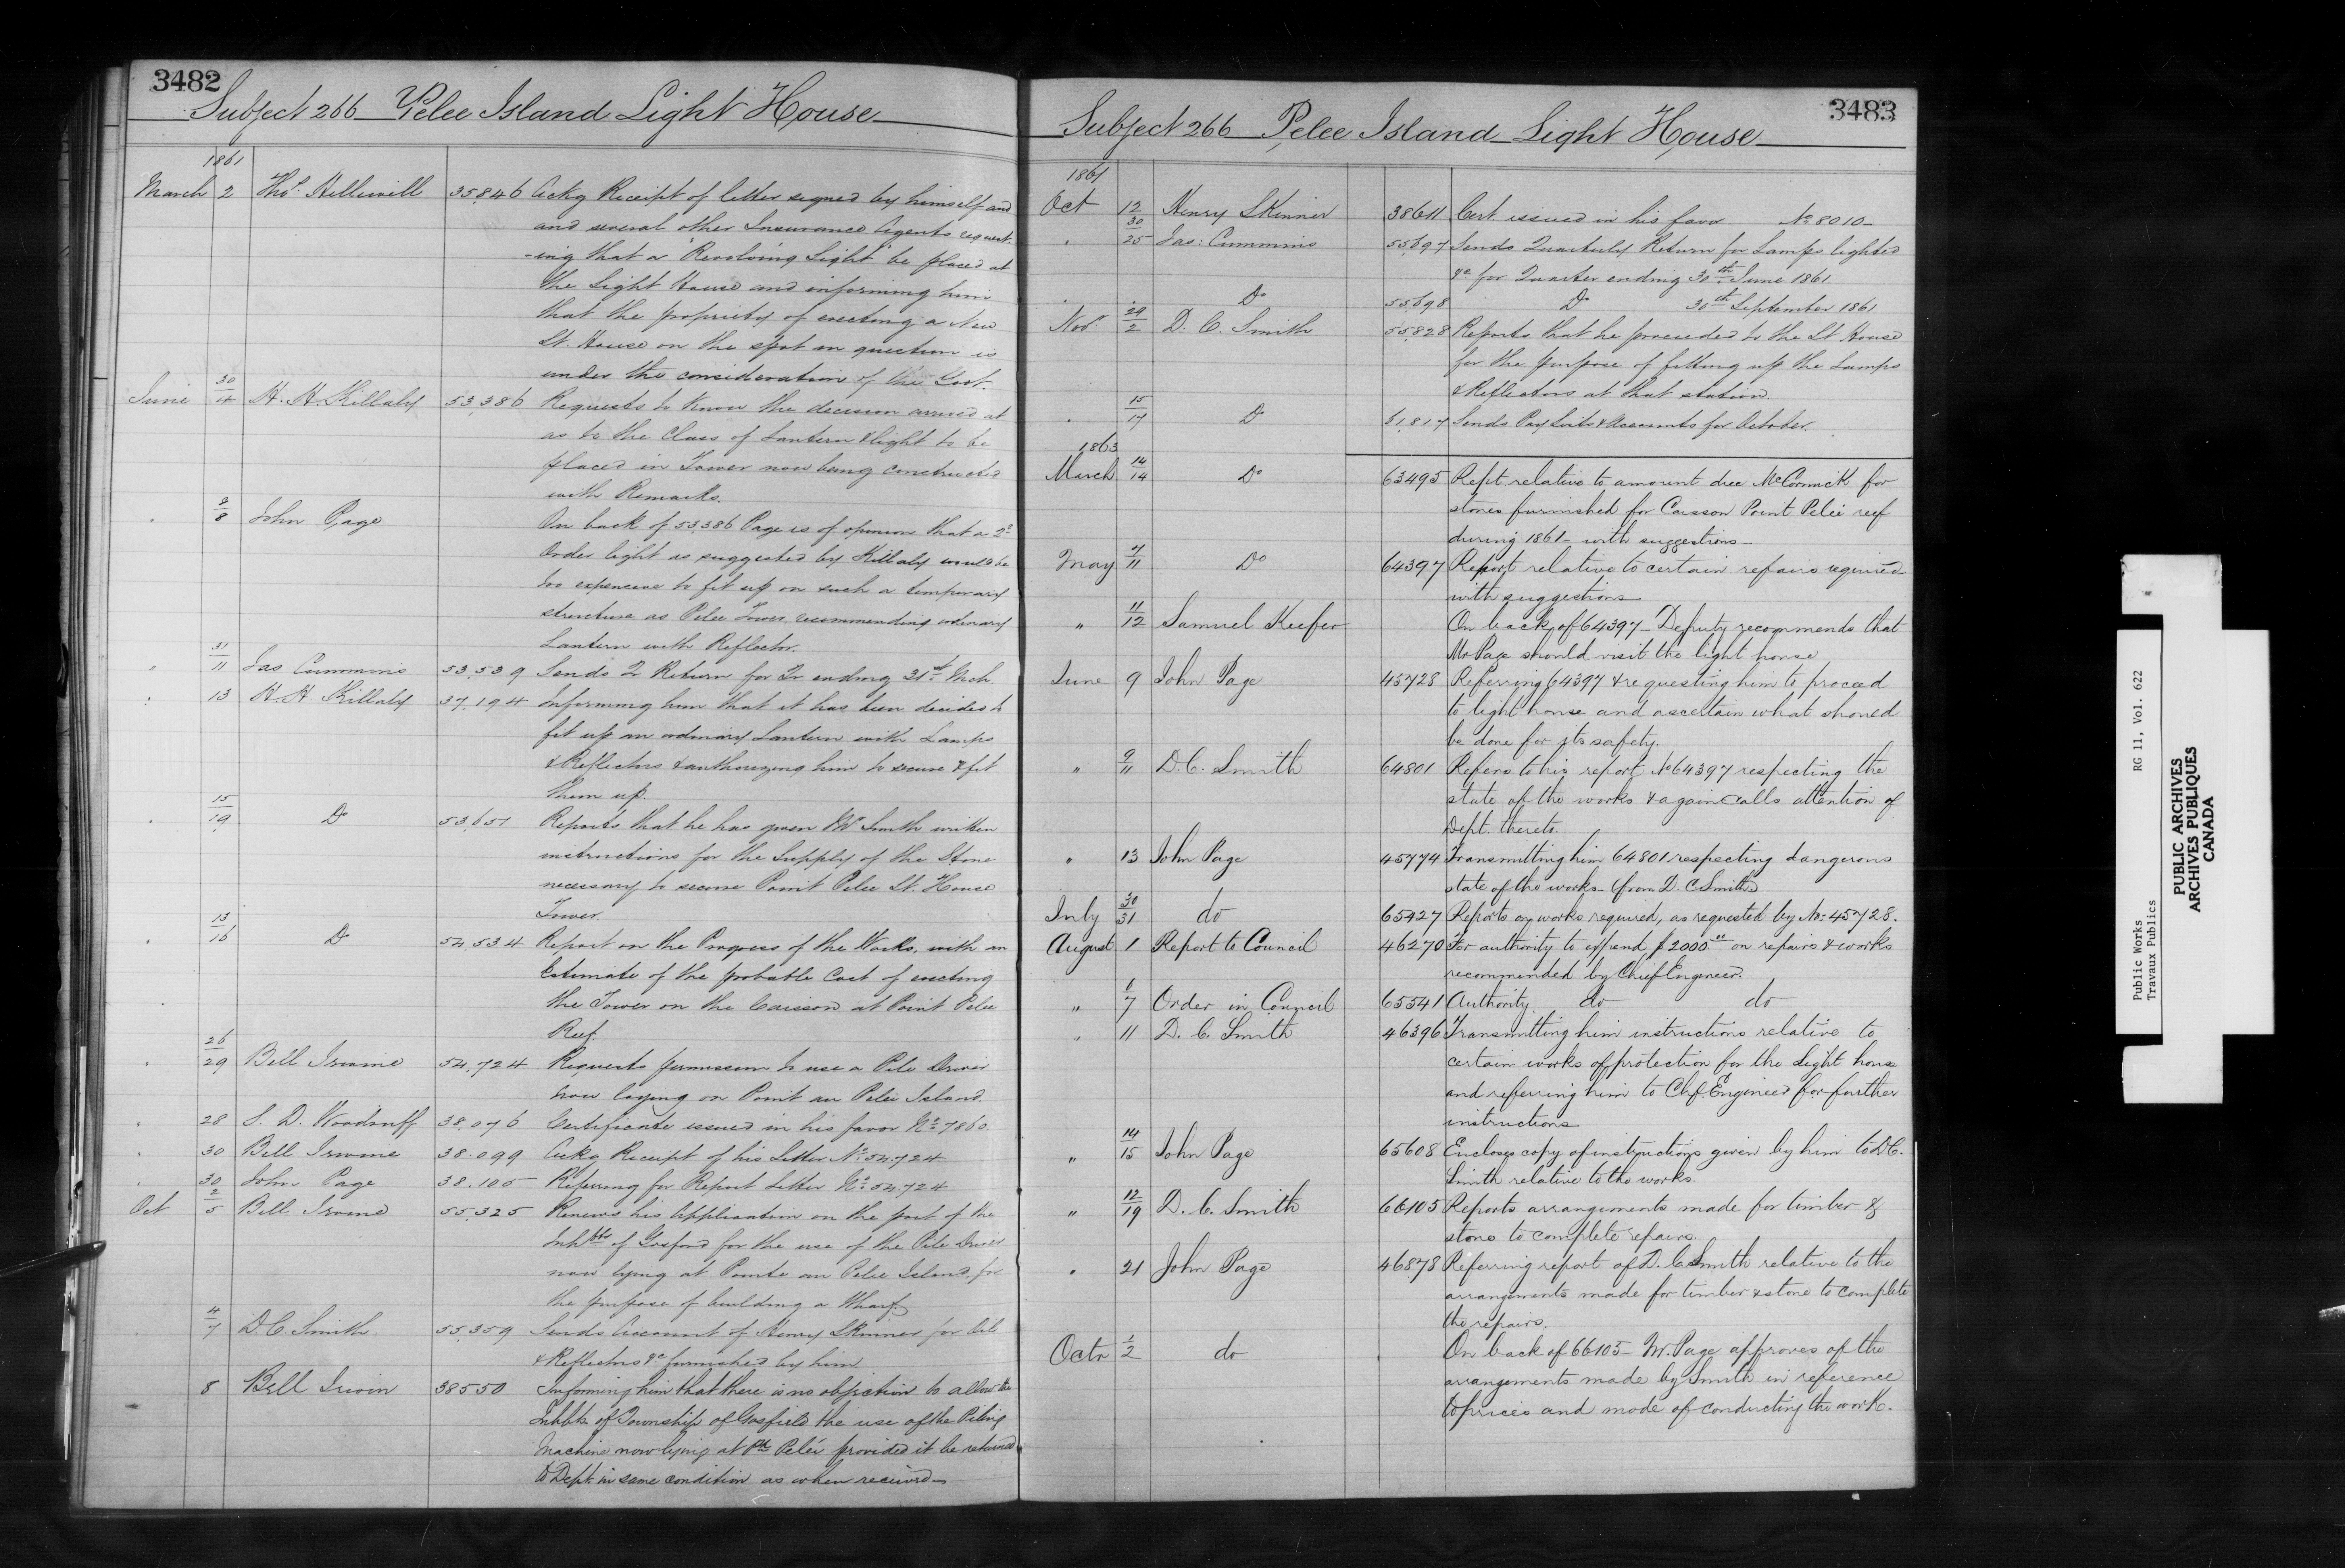 3482
Subject 266 Pelee Island Light House
1861
March 2 Thos. Helliwell 35846 Ackg Receipt of letter signed by himself and
and several other Insurance Agents request-
-ing that a "Revolving Light" be placed at
the Light House and informing him
that the propriety of erecting a New
Lt. House on the spot in question is
under the consideration of the Govt.
June 30/4 H. H. Killaly 53,386 Requests to know the decision arrived at
as to the Class of Lantern & light to be
placed in Tower now being constructed
with Remarks.
" 8 John Page On back of 53,386 Page is of opinion that a 2d
Order light as suggested by Killaly would be
too expensive to fit up on such a temporary
structure as Pelee Tower, recommending ordinary
Lantern with Reflector.
" 31/11 Jas Cummins 53,539 Sends Q Return for Qr ending 31st Mch.
" 13 H. H. Killaly 37,194 Informing him that it has been decided to
fit up an ordinary Lantern with Lamps
& Reflectors & authorizing him to secure & fit
them up.
" 15/19 Do 53,651 Reports that he has given Mr Smith written
instructions for the Supply of the Stone
necessary to secure Point Pelee Lt. House
Tower.
" 13/16 Do 54,534 Report on the Progress of the Works, with an
Estimate of the probable Cost of erecting
the Tower on the Caisson at Point Pelee
Reef.
" 26/29 Bell Irvine 54,724 Requests permission to use a Pile Driver
now laying on Point au Pelee Island.
" 28 S. D. Woodruff 38,076 Certificate issued in his favor No. 7860
" 30 Bell Irvine 38.099 Ackg Receipt of his Letter No. 54,724
" 30 John Page 38.105 Referring for Report Letter No. 54,724
Oct 2/5 Bell Irvine 55,325 Renews his Application on the part of the
Inhbts of Gosford for the use of the Pile Driver
now lying at Pointe au Pelee Island, for
the purpose of building a Wharf.
4/7 D C. Smith 55,359 Sends Account of Henry Skinner for Oil
& Reflectors &c furnished by him
8 Bell Irwin 38550 Informing him that there is no objection to allow the
Inhbts of Township of Gosfield the use of the Piling
Machine now lying at Pt Pelée provided it be returned
to Dept. in same condition as when received—
3483
Subject 266 Pelee Island Light House
1861
Oct 12 Henry Skinner 38611 Cert issued in his favor No 8010—
" 30/25 Jas: Cummins 55,697 Sends Quarterly Return for Lamps lighted
&c for Quarter ending 30th June 1861
" Do 55,698 Do 30th September 1861
Novr 29/2 D. C. Smith 55,828 Reports that he proceeded to the Lt House
for the purpose of fitting up the Lamps
& Reflectors at that station.
" 15/17 Do 51,817 Sends Pay Lists & Accounts for October
1863
March 14/14 Do 63495 Rept relative to amount due McCormick for
stones furnished for Caisson Point Pelée reef
during 1861— with suggestions—
May 7/11 Do 64397 Report relative to certain repairs required
with suggestions
" 11/12 Samuel Keefer On back of 64397— Deputy recommends that
Mr Page should visit the light house
June 9 John Page 45728 Referring 64397 & requesting him to proceed
to light house and ascertain what should
be done for its safety.
" 9/11 D. C. Smith 64801 Refers to his report No 64397 respecting the
state of the works & again calls attention of
Dept. thereto.
" 13 John Page 45774 Transmitting him 64801 respecting dangerous
state of the works— (from D. C Smith)
July 30/31 do 65427 Reports on works required, as requested by No: 45728.
August 1 Report to Council 46270 For authority to expend $2000.00 on repairs & works
recommended by Chief Engineer.
" 6/7 Order in Council 65541 Authority do do
" 11 D. C. Smith 46396 Transmitting him instructions relative to
certain works of protection for the Light house
and referring him to Chf. Engineer for further
instructions
" 14/15 John Page 65608 Encloses copy of instructions given by him to D C.
Smith relative to the works.
" 12/19 D. C. Smith 66105 Reports arrangements made for timber &
stone to complete repairs.
" 21 John Page 46878 Referring report of D. C Smith relative to the
arrangements made for timber & stone to complete
the repairs.
Octr 1/2 do On back of 66105— Mr. Page approves of the
arrangements made by Smith in reference
to prices and mode of conducting the work.
Public Works RG 11, Vol. 622
Travaux Publics
PUBLIC ARCHIVES
ARCHIVES PUBLIQUES
CANADA